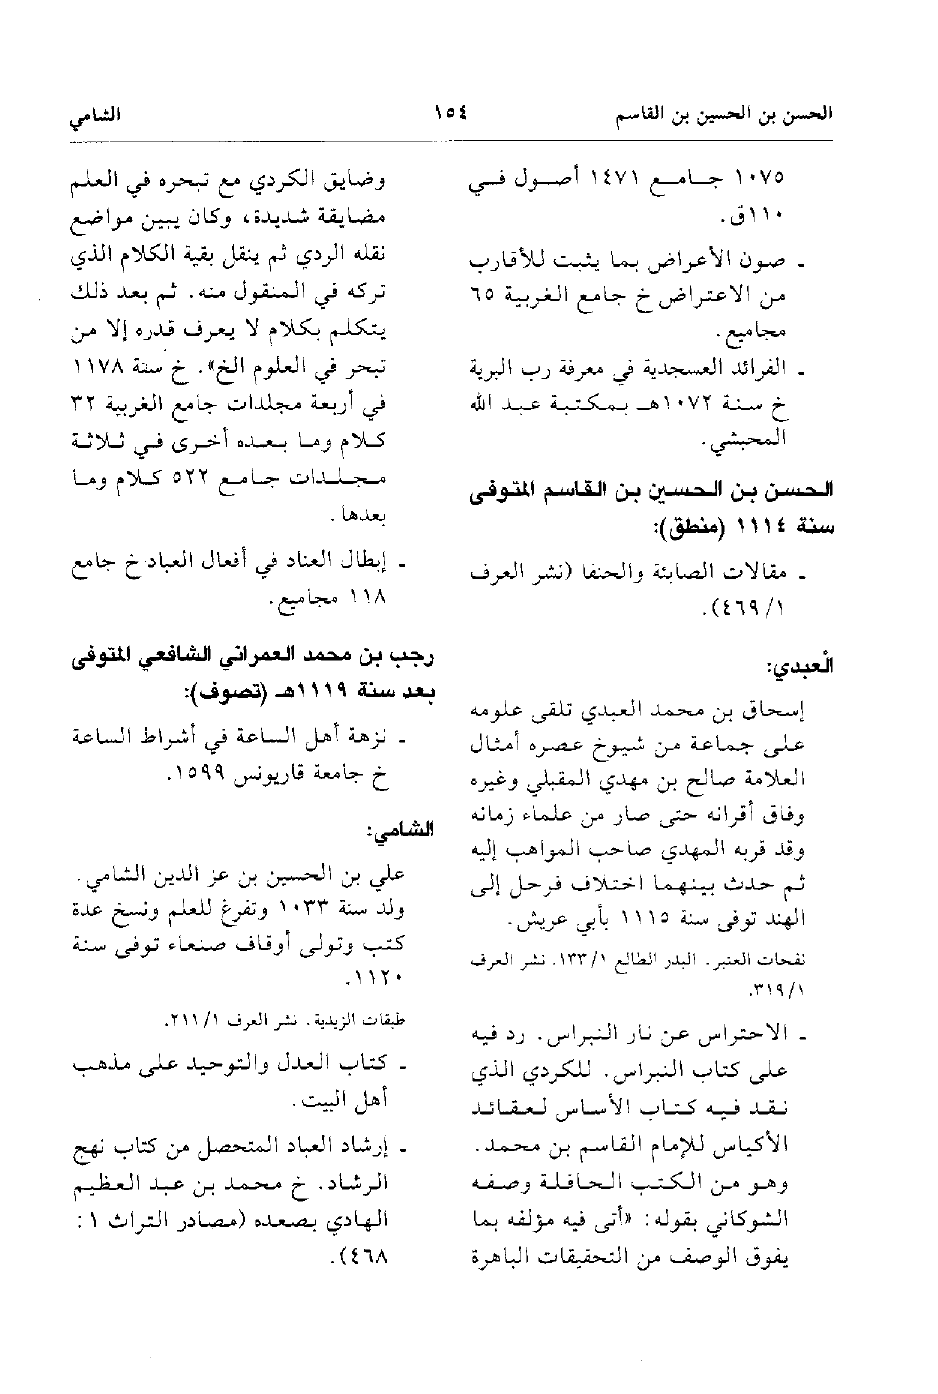 الحسن بن الحسين بن القاسم ١٥٤ الشامي
١٠٧٥ جامع ١٤٧١ أصول في
١١٠ق.
- صون الأعراض بما يثبت للأقارب
من الاعتراض خ جامع الغربية ٦٥
مجاميع.
- الفرائد العسجدية في معرفة رب البرية
خ سنة ١٠٧٢هـ بمكتبة عبد الله
المحبشي.
الحسن بن الحسين بن القاسم المتوفى
سنة ١١١٤ (منطق):
- مقالات الصابئة والحنفا (نشر العرف
١/ ٤٦٩).
العبدي:
إسحاق بن محمد العبدي تلقى علومه
على جماعة من شيوخ عصره أمثال
العلامة صالح بن مهدي المقبلي وغيره
وفاق أقرانه حتى صار من علماء زمانه
وقد قربه المهدي صاحب المواهب إليه
ثم حدث بينهما اختلاف فرحل إلى
الهند توفى سنة ١١١٥ بأبي عريش.
نفحات العنبر. البدر الطالع ١/ ١٣٣. نشر العرف
١/ ٣١٩.
- الاحتراس عن نار النبراس. رد فيه
على كتاب النبراس. للكردي الذي
نقد فيه كتاب الأساس لعقائد
الأكياس للإمام القاسم بن محمد.
وهو من الكتب الحافلة وصفه
الشوكاني بقوله: «أتى فيه مؤلفه بما
يفوق الوصف من التحقيقات الباهرة
وضايق الكردي مع تبحره في العلم
مضايقة شديدة، وكان يبين مواضع
نقله الردي ثم ينقل بقية الكلام الذي
تركه في المنقول منه. ثم بعد ذلك
يتكلم بكلام لا يعرف قدره إلا من
تبحر في العلوم الخ». خ سنة ١١٧٨
في أربعة مجلدات جامع الغربية ٣٢
كلام وما بعده أخرى في ثلاثة
مجلدات جامع ٥٢٢ كلام وما
بعدها.
- إبطال العناد في أفعال العباد خ جامع
١١٨ مجاميع.
رجب بن محمد العمراني الشافعي المتوفى
بعد سنة ١١١٩هـ (تصوف):
- نزهة أهل الساعة في أشراط الساعة
خ جامعة قاريونس ١٥٩٩.
الشامي:
علي بن الحسين بن عز الدين الشامي.
ولد سنة ١٠٣٣ وتفرغ للعلم ونسخ عدة
كتب وتولى أوقاف صنعاء توفى سنة
١١٢٠.
طبقات الزيدية. نشر العرف ١/ ٢١١.
- كتاب العدل والتوحيد على مذهب
أهل البيت.
- إرشاد العباد المتحصل من كتاب نهج
الرشاد. خ محمد بن عبد العظيم
الهادي بصعده (مصادر التراث ١:
٤٦٨).